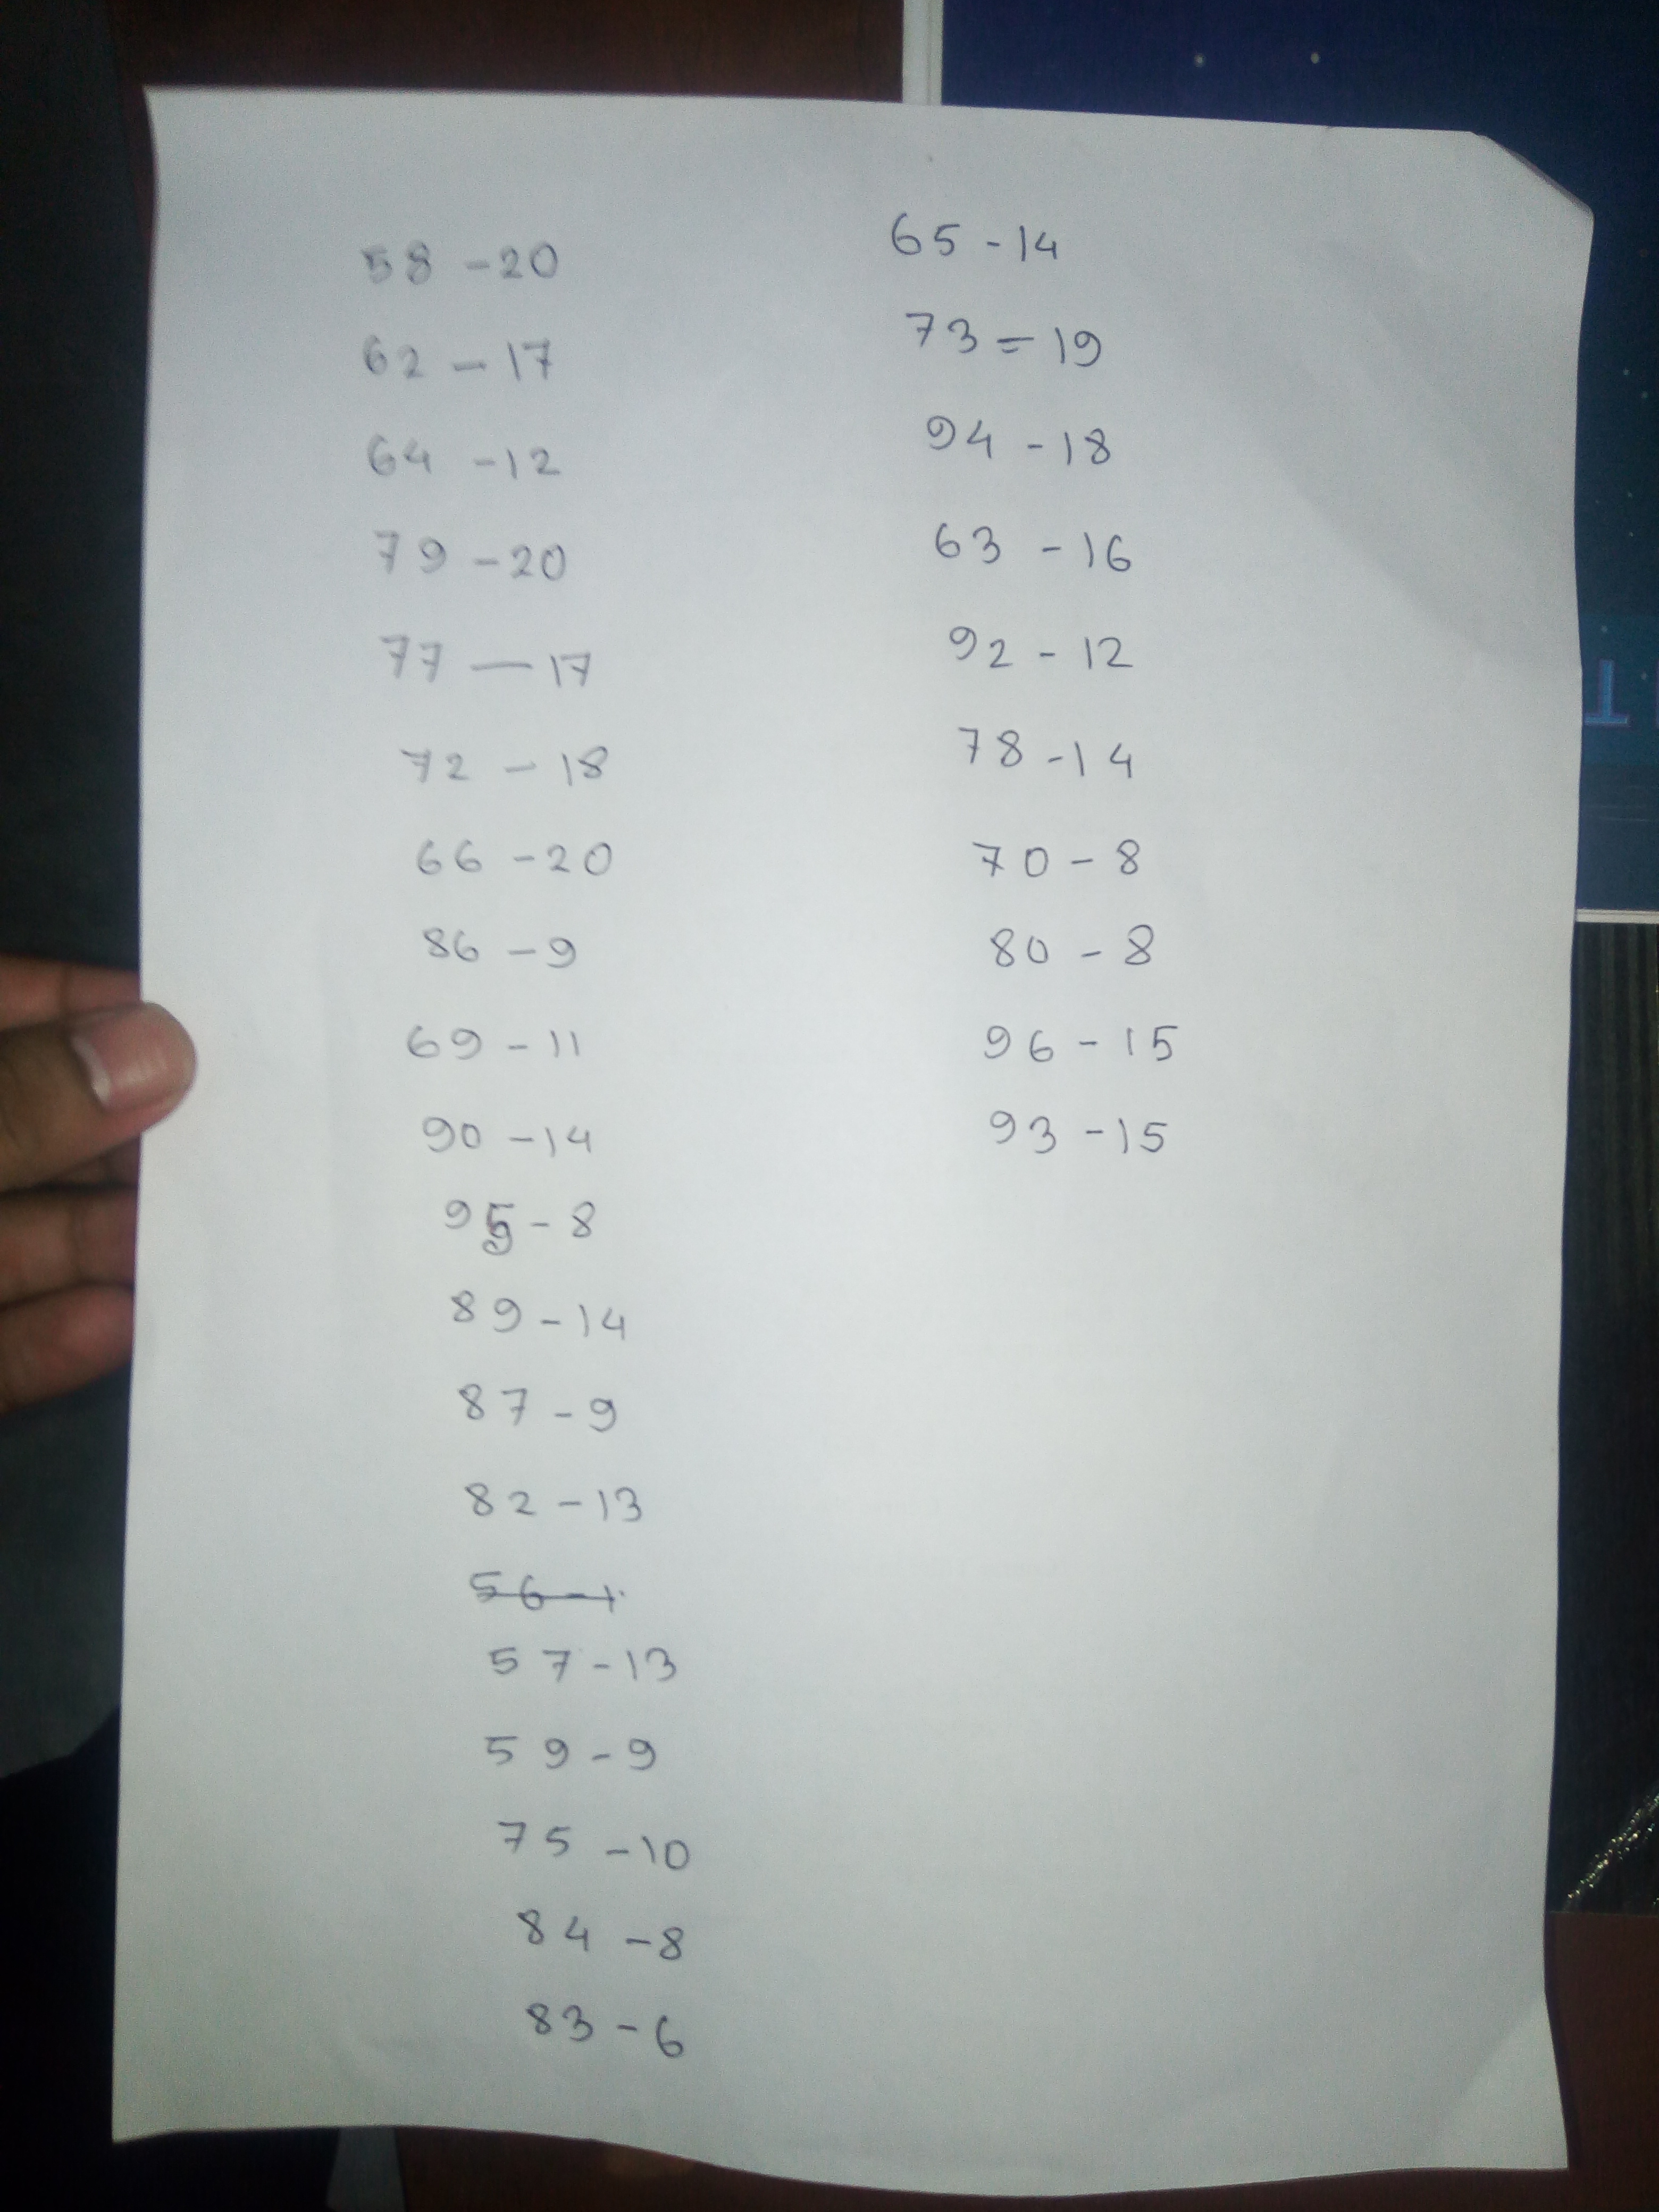 58 - 20
62 - 17
64 - 12
79 - 20
77 — 17
72 - 18
66 - 20
86 - 9
69 - 11
90 - 14
95 - 8
89 - 14
87 - 9
82 - 13
56 - 1
57 - 13
59 - 9
75 - 10
84 - 8
83 - 6
65 - 14
73 = 19
94 - 18
63 - 16
92 - 12
78 - 14
70 - 8
80 - 8
96 - 15
93 - 15